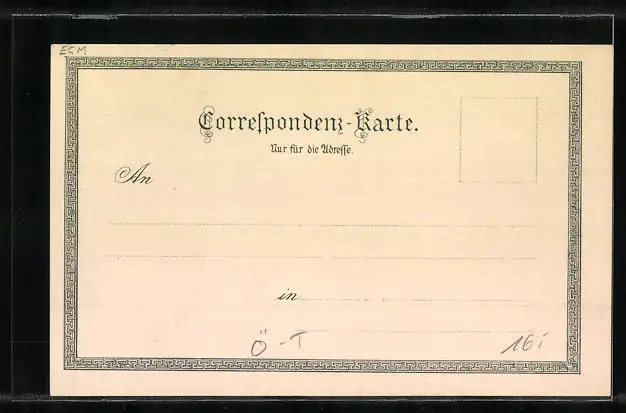 EGM
Correſpondenz-Karte.
Nur für die Adreſſe.
An
in
Ö-T 16i